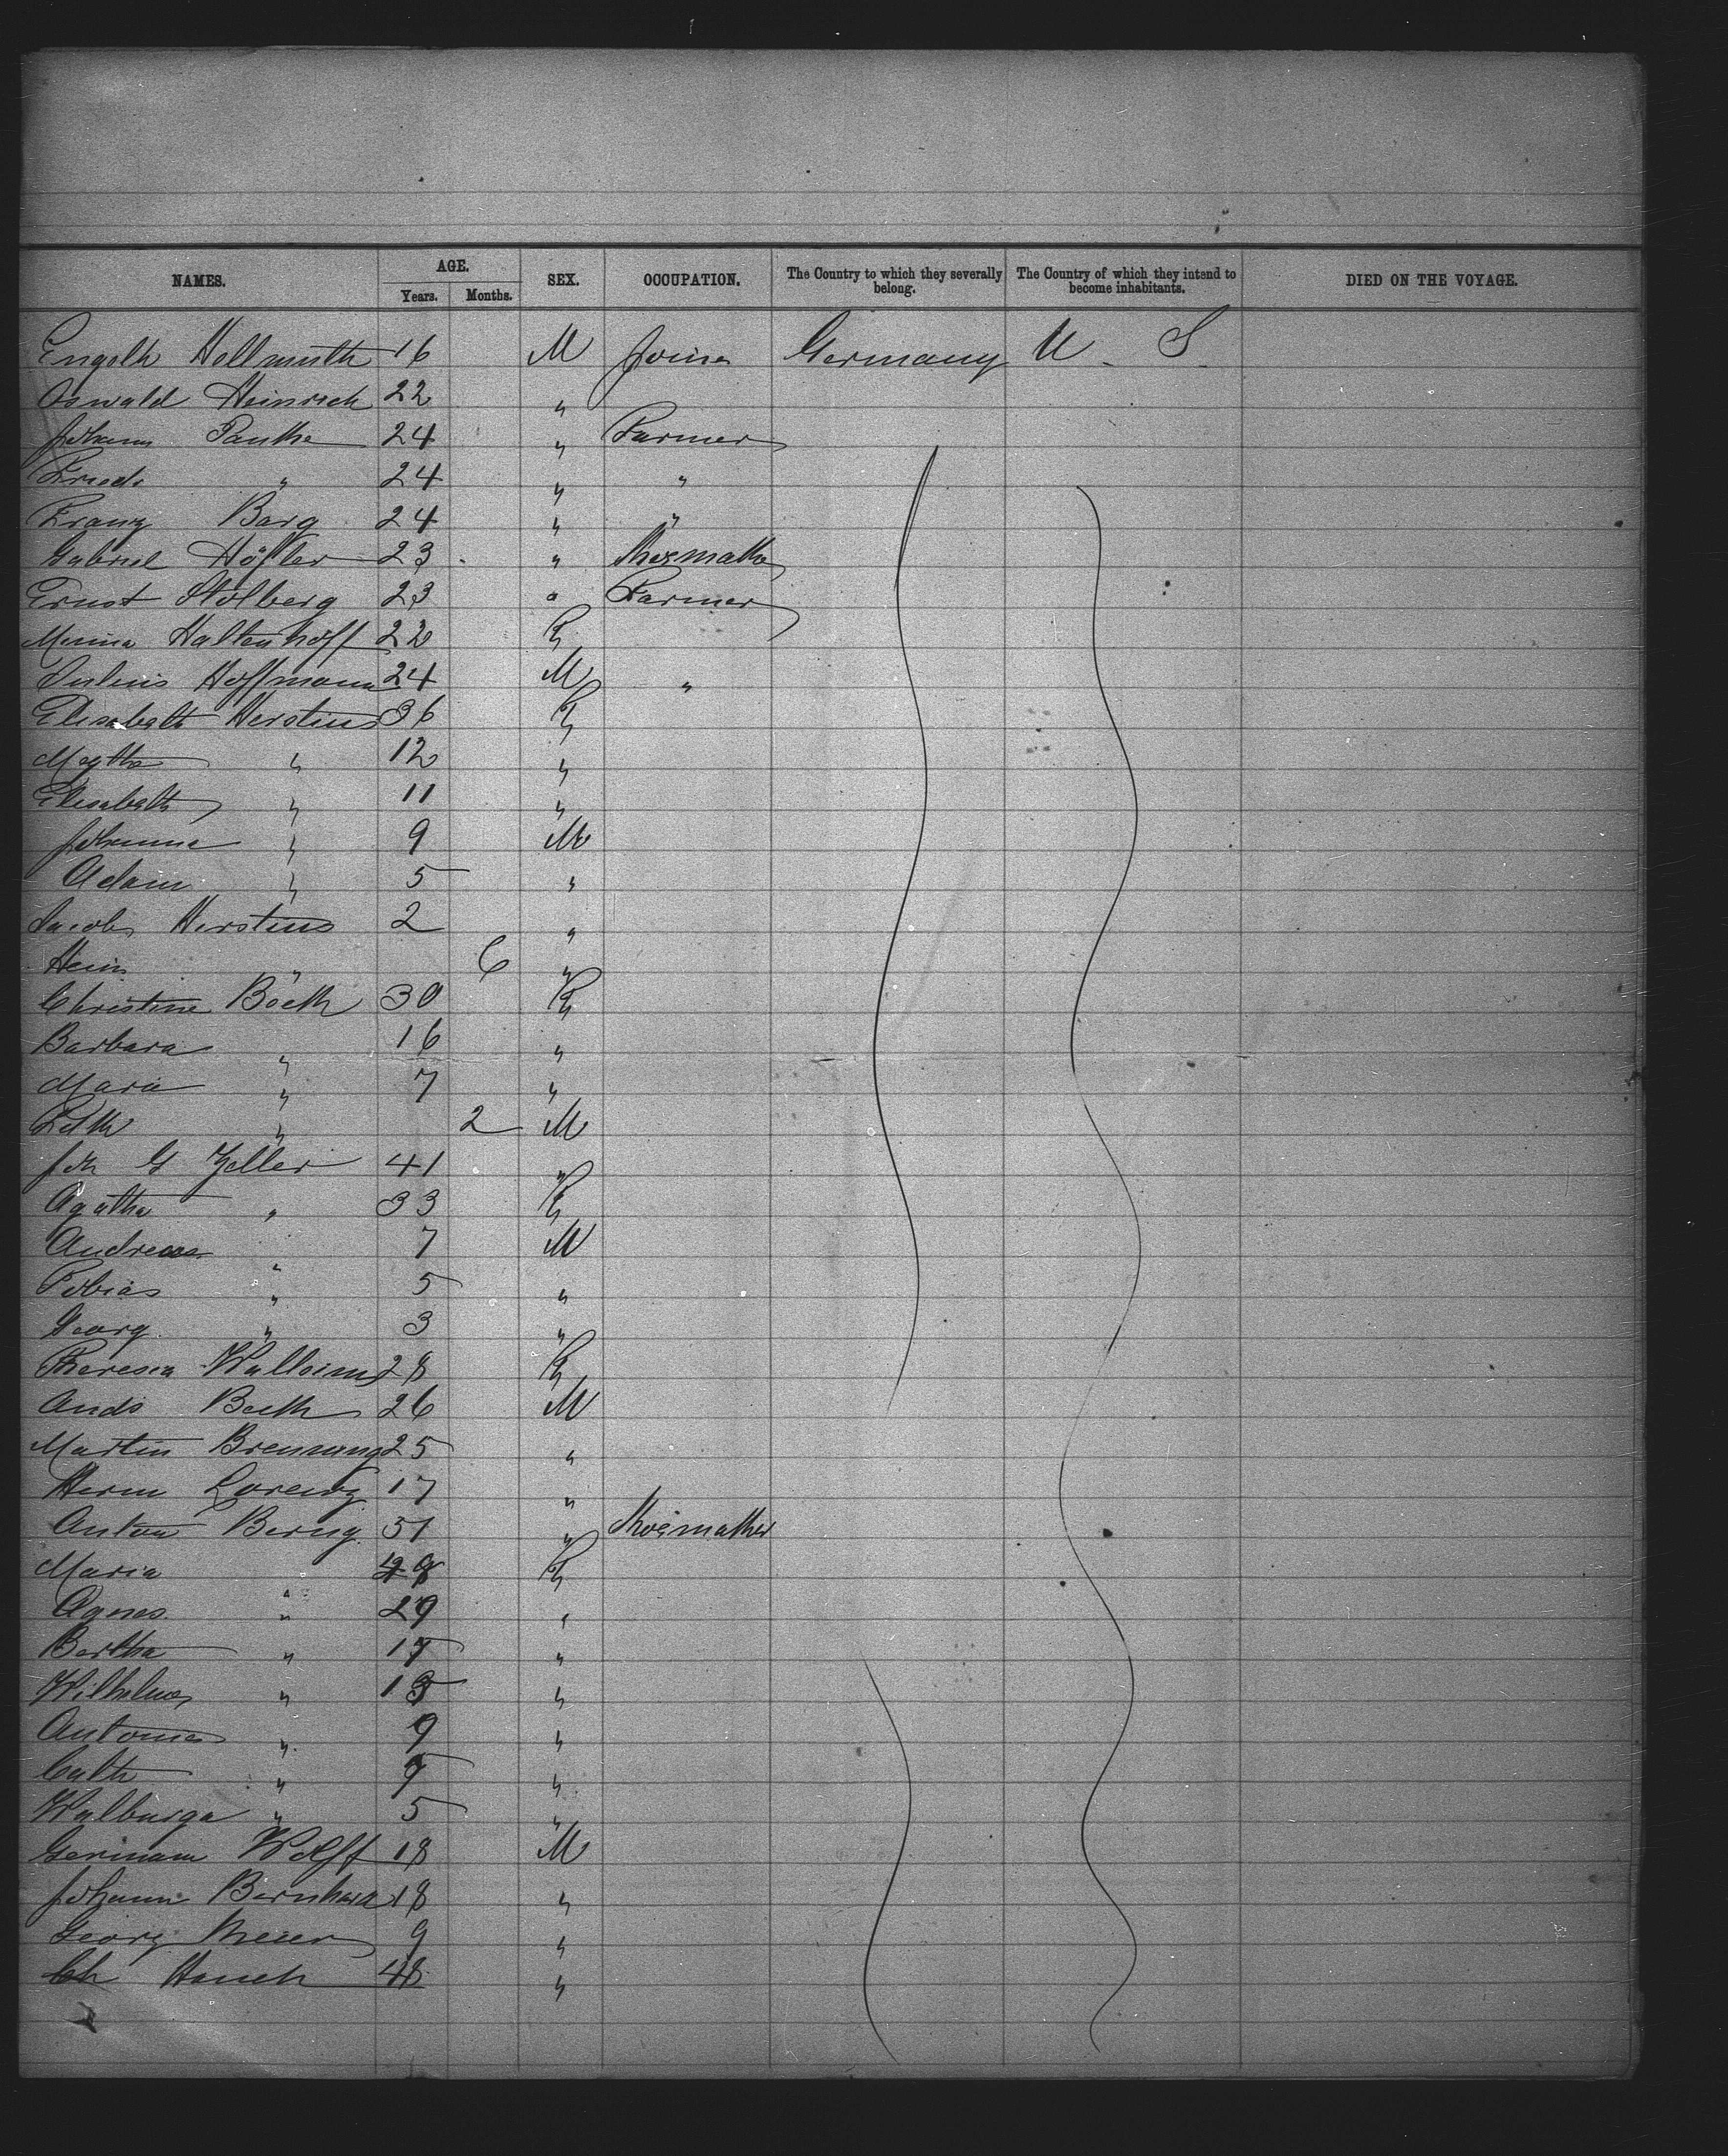 NAMES. AGE. SEX. OCCUPATION. The Country to which they severally belong. The Country of which they intend to become inhabitants. DIED ON THE VOYAGE.
Years. Months.
Hellmuth 16 M Germany U. S.
Oswald Heinrich 22 "
Johann Panthe 24 " Farmer
Friedr " 24 " "
Franz Barg 24 " "
Gabriel Höfler 23 "
Ernst Stolberg 23 " Farmer
Minna Haltenhoff 22 F
Julius Hoffmann 24 M "
Elisabeth Herstius 36 F
" 12 "
Elisabeth " 11 "
Johanna " 9 M
Adam " 5 "
Jacob Herstius 2 "
Hein " 6 "
Christine Boeth 30 F
Barbara " 16 "
Maria " 7 "
" 2 M
Joh G Zeller 41 "
Agatha " 33 F
Andreas " 7 M
Tobias " 5 "
Georg " 3 "
Theresia 28 F
Andr Beth 26 M
Martin Brenning 25 "
Herm Lorenz 17 "
Anton Bering 51 " Shoemather
Maria " F
Agnes " 29 "
Bertha " "
Wilhelm " "
Antonie " 9 "
Cath " "
Walburga " 5 "
Germann Wolff 18 M
Johann Bernhard 18 "
Georg Meier 9 "
Ch Hauch 48 "